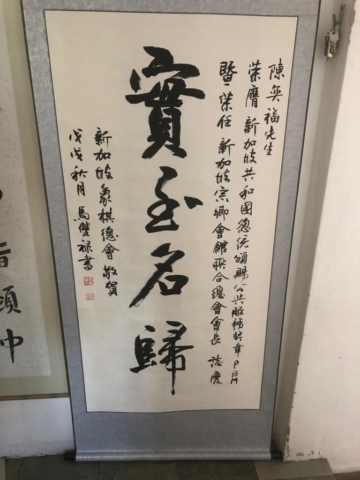 陳奕福先生
榮膺 新加坡共和國總統頒賜公共服務獎章PBM
暨榮任 新加坡宗鄉會館聯合總會會長 誌慶
實至名歸
新加坡象棋總會 敬賀
戊戌秋月 馬雙祿書
中